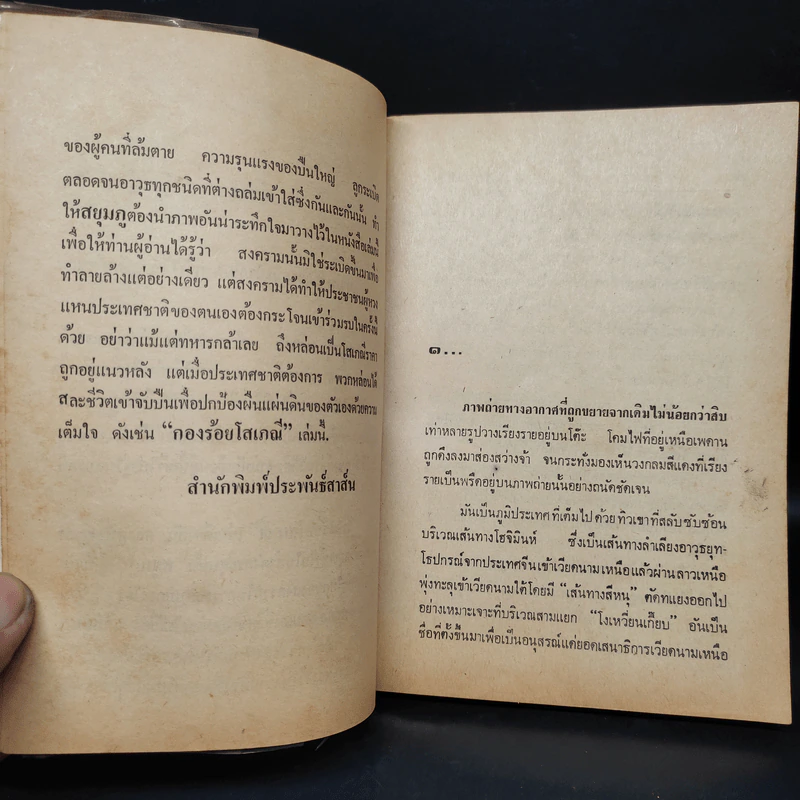 ของผู้คนที่ล้มตาย ความรุนแรงของปืนใหญ่ ลูกระเบิด
ตลอดจนอาวุธทุกชนิดที่ต่างถล่มเข้าใส่ซึ่งกันและกันนั้น ทำ
ให้สยุมภูต้องนำภาพอันน่าระทึกใจมาวางไว้ในหนังสือเล่มนี้
เพื่อให้ท่านผู้อ่านได้รู้ว่า สงครามนั้นมิใช่ระเบิดขึ้นมาเพื่อ
ทำลายล้างแต่อย่างเดียว แต่สงครามได้ทำให้ประชาชนผู้หวง
แหนประเทศชาติของตนเองต้องกระโจนเข้าร่วมรบในครั้งนี้
ด้วย อย่าว่าแม้แต่ทหารกล้าเลย ถึงหล่อนเป็นโสเภณีราคา
ถูกอยู่แนวหลัง แต่เมื่อประเทศชาติต้องการ พวกหล่อนได้
สละชีวิตเข้าจับปืนเพื่อปกป้องผืนแผ่นดินของตัวเองด้วยความ
เต็มใจ ดังเช่น “กองร้อยโสเภณี” เล่มนี้.
สำนักพิมพ์ประพันธ์สาส์น
๑...
ภาพถ่ายทางอากาศที่ถูกขยายจากเดิมไม่น้อยกว่าสิบ
เท่าหลายรูปวางเรียงรายอยู่บนโต๊ะ โคมไฟที่อยู่เหนือเพดาน
ถูกดึงลงมาส่องสว่างจ้า จนกระทั่งมองเห็นวงกลมสีแดงที่เรียง
รายเป็นพรืดอยู่บนภาพถ่ายนั้นอย่างถนัดชัดเจน
มันเป็นภูมิประเทศที่เต็มไปด้วยทิวเขาที่สลับซับซ้อน
บริเวณเส้นทางโฮจิมินห์ ซึ่งเป็นเส้นทางลำเลียงอาวุธยุท-
โธปกรณ์จากประเทศจีนเข้าเวียดนามเหนือแล้วผ่านลาวเหนือ
พุ่งทะลุเข้าเวียดนามใต้โดยมี “เส้นทางสีหนุ” ตัดทแยงออกไป
อย่างเหมาะเจาะที่บริเวณสามแยก “โงเหวียนเกี๊ยบ” อันเป็น
ชื่อที่ตั้งขึ้นมาเพื่อเป็นอนุสรณ์แด่ยอดเสนาธิการเวียดนามเหนือ